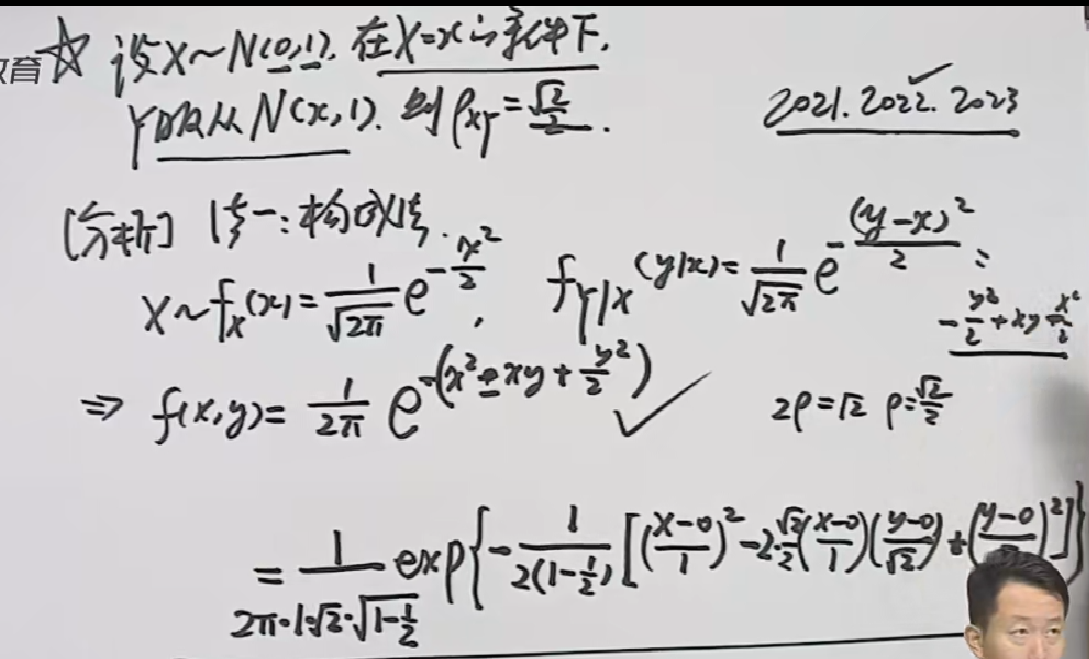 教育
☆ 设X~N(0,1). 在X=x的条件下,
Y服从N(x,1). 则ρ_XY = √2/2.
2021. 2022. 2023
[分析] 法一:构成法.
X~f_X(x)= 1/√(2π) e^(-x²/2), f_Y|X(y|x)= 1/√(2π) e^(-(y-x)²/2) :
-y²/2+xy-x²/2
⇒ f(x,y)= 1/2π e^(-(x²-xy+y²/2)) ✓
2ρ=√2 ρ=√2/2
= 1/(2π·1·√2·√(1-1/2)) exp{-1/(2(1-1/2)) [((x-0)/1)²-2·√2/2((x-0)/1)((y-0)/√2)+((y-0)/ )²]}